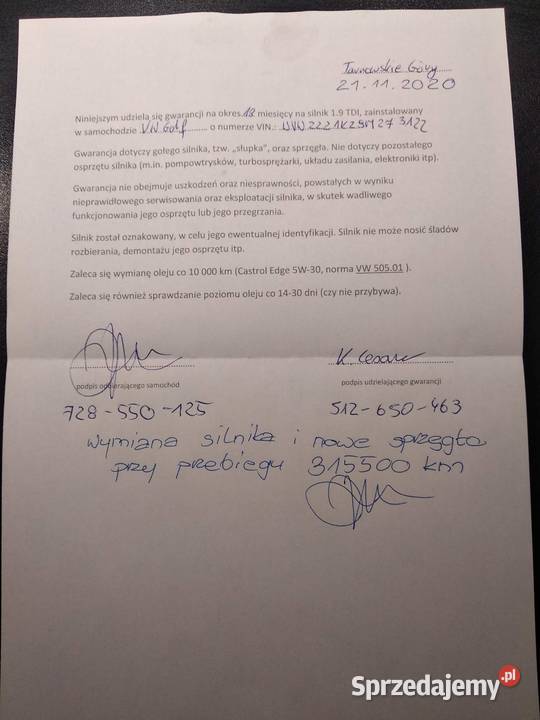 Tarnowskie Góry
21.11.2020
Niniejszym udziela się gwarancji na okres 12 miesięcy na silnik 1.9 TDI, zainstalowany
w samochodzie VW Golf ........ o numerze VIN.:
Gwarancja dotyczy gołego silnika, tzw. „słupka", oraz sprzęgła. Nie dotyczy pozostałego
osprzętu silnika (m.in. pompowtrysków, turbosprężarki, układu zasilania, elektroniki itp).
Gwarancja nie obejmuje uszkodzeń oraz niesprawności, powstałych w wyniku
nieprawidłowego serwisowania oraz eksploatacji silnika, w skutek wadliwego
funkcjonowania jego osprzętu lub jego przegrzania.
Silnik został oznakowany, w celu jego ewentualnej identyfikacji. Silnik nie może nosić śladów
rozbierania, demontażu jego osprzętu itp.
Zaleca się wymianę oleju co 10 000 km (Castrol Edge 5W-30, norma VW 505.01 ).
Zaleca się również sprawdzanie poziomu oleju co 14-30 dni (czy nie przybywa).
K. Cesarz
podpis odbierającego samochód podpis udzielającego gwarancji
728-550-125 512-650-463
wymiana silnika i nowe sprzęgło
przy przebiegu 315500 km
Sprzedajemy.pl